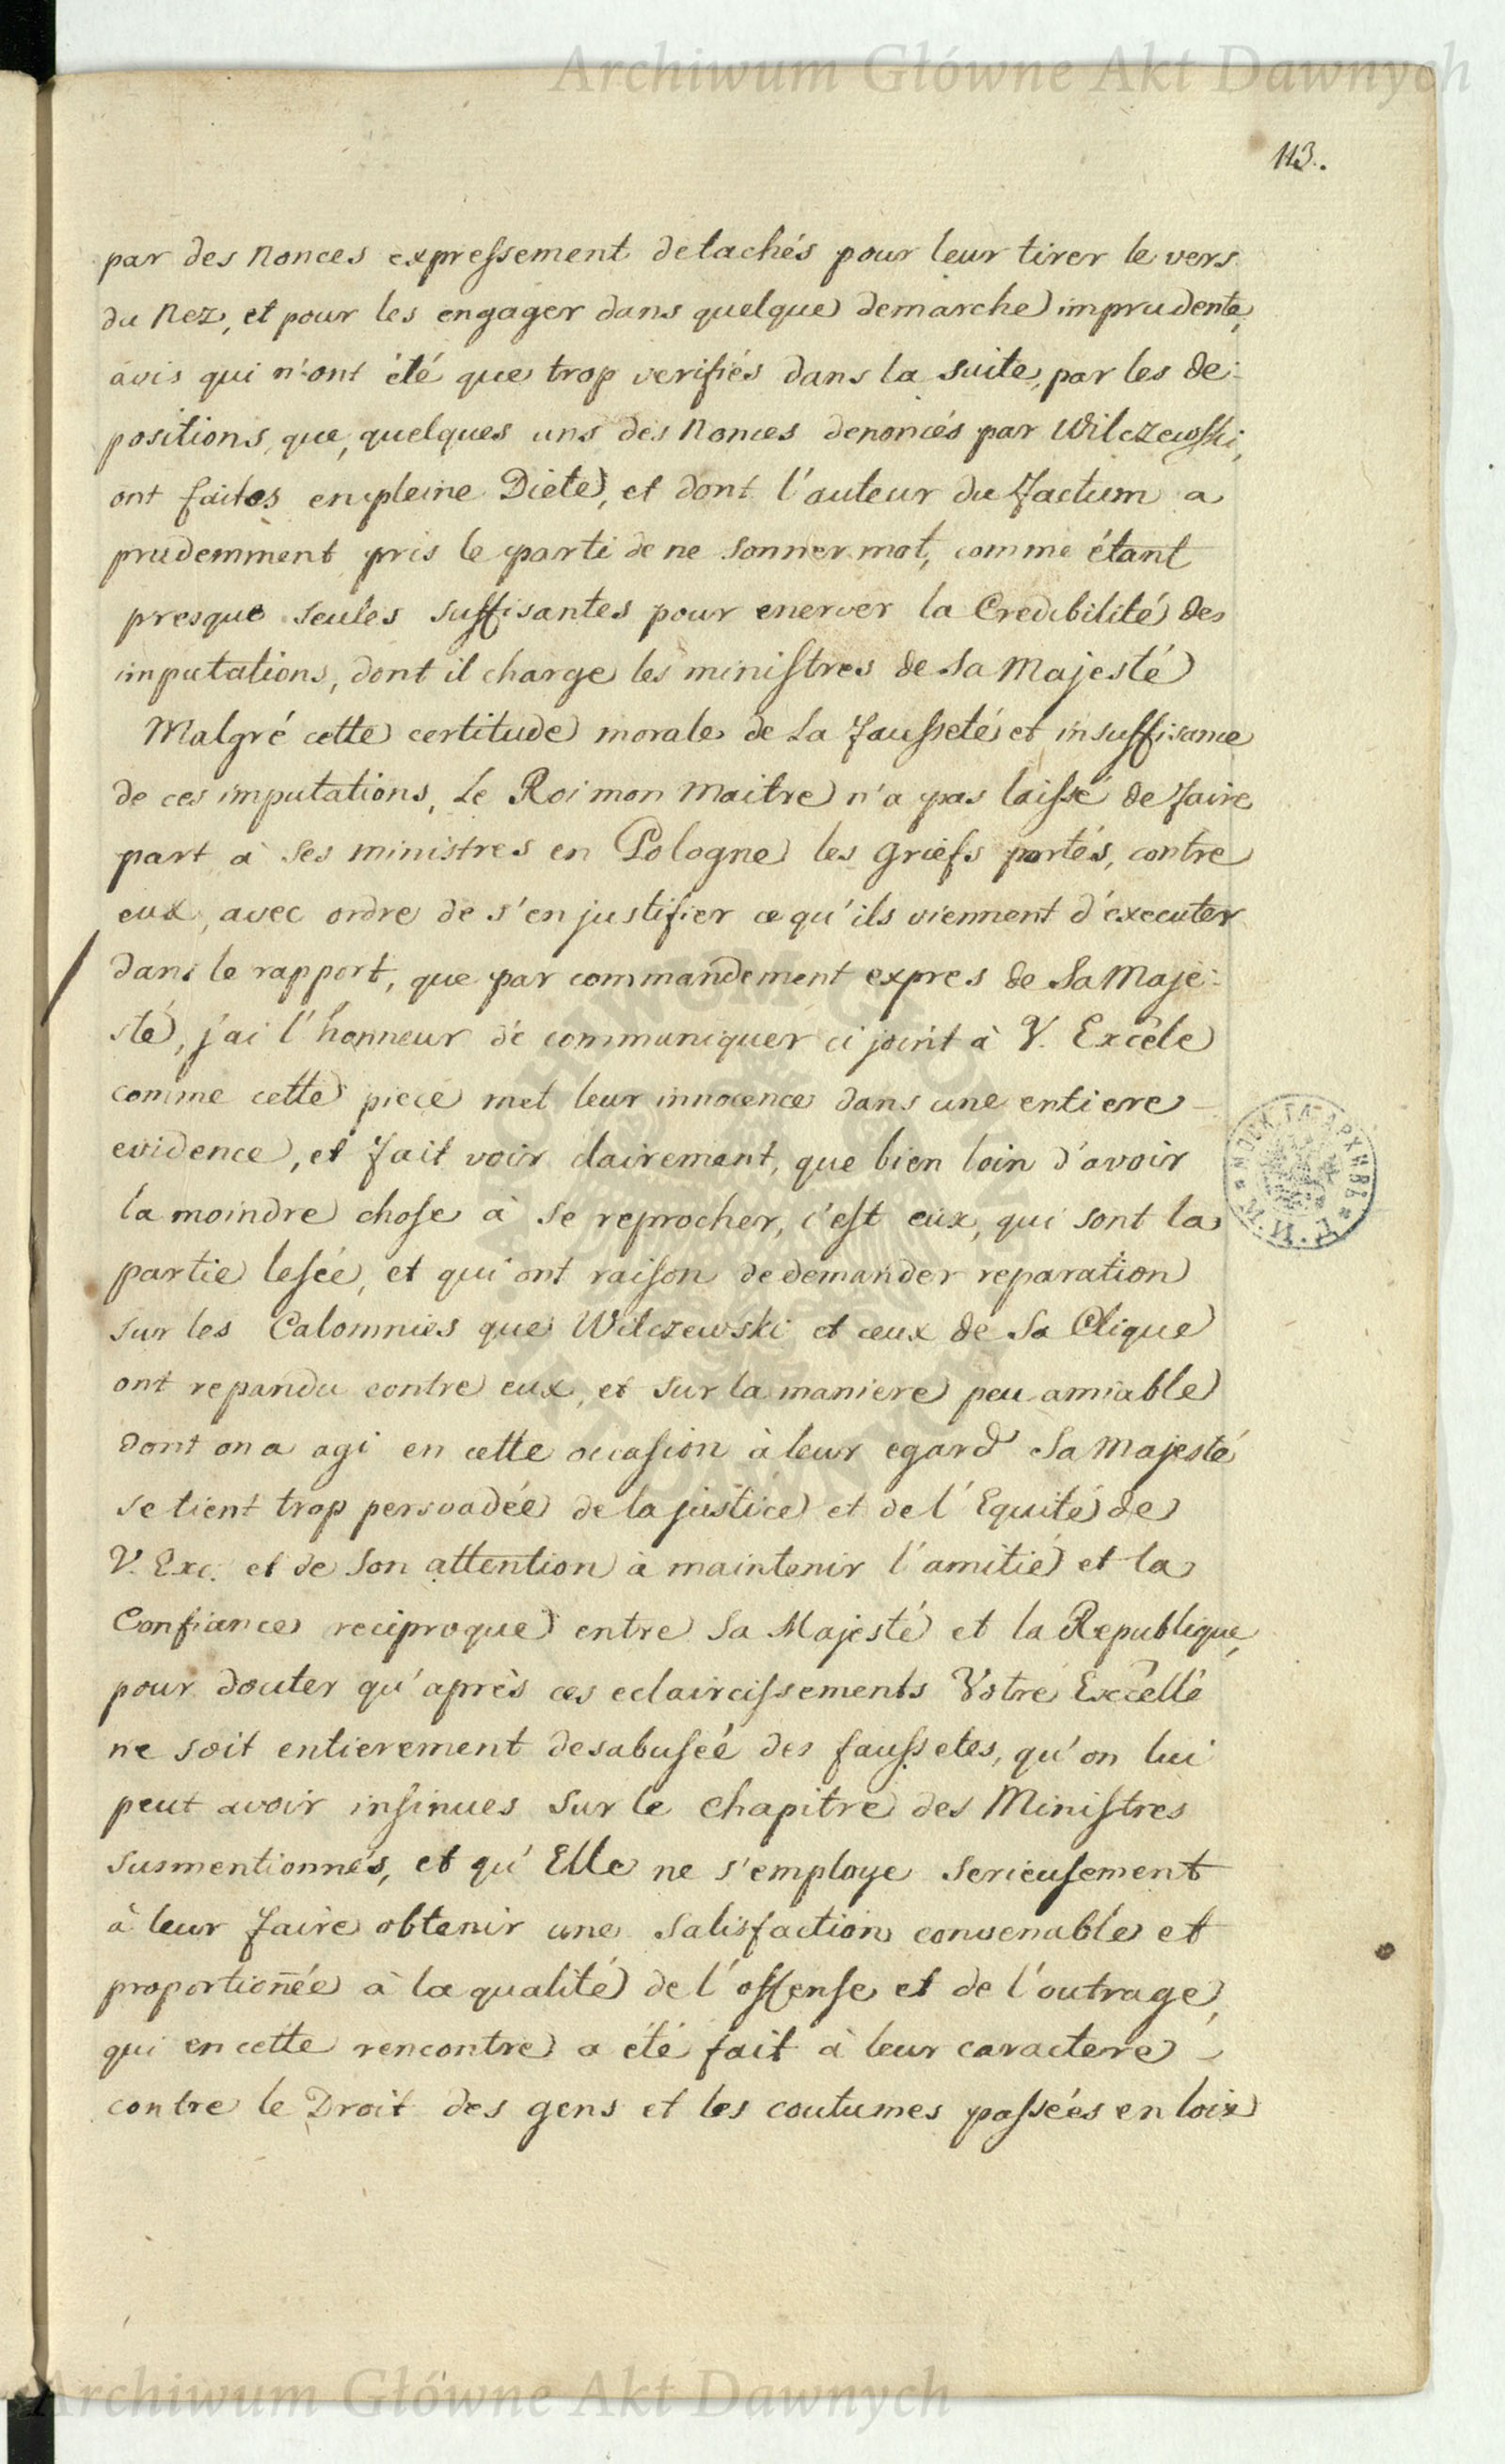 Archiwum Główne Akt Dawnych
113.
par des Nonces expressement detachés pour leur tirer le vers
du Nez, et pour les engager dans quelque demarche imprudente,
avis qui n'ont été que trop verifiés dans la suite, par les de-
positions, que, quelques uns des Nonces denoncés par Wilczewski,
ont faites en pleine Diete, et dont l'auteur du factum a
prudemment pris le parti de ne sonner mot, comme étant
presque seules suffisantes pour enerver la Credibilité des
imputations, dont il charge les ministres de Sa Majesté
Malgré cette certitude morale de La fausseté et insuffisance
de ces imputations, Le Roi mon Maitre n'a pas laissé de faire
part à ses ministres en Pologne les griefs portés, contre
eux, avec ordre de s'en justifier ce qu'ils viennent d'executer
dans le rapport, que par commandement expres de Sa Maje-
sté, j'ai l'honneur de communiquer ci joint à V. Excele
comme cette piece met leur innocence dans une entiere
evidence, et fait voir clairement, que bien loin d'avoir
la moindre chose à se reprocher, c'est eux, qui sont la
partie lesée, et qui ont raison de demander reparation
sur les Calomnies que Wilczewski et ceux de Sa Clique
ont repandu contre eux, et sur la maniere peu amiable
dont on a agi en cette occasion à leur egard Sa Majesté
se tient trop persuadée de la justice et de l'Equité de
V. Exc. et de Son attention à maintenir l'amitié et la
Confiance reciproque entre Sa Majesté et la Republique,
pour douter qu'après ces eclaircissements Votre Excelle
ne soit entierement desabusée des faussetes, qu'on lui
peut avoir insinues sur le chapitre des Ministres
susmentionnés, et qu'Elle ne s'employe serieusement
à leur faire obtenir une satisfaction convenable et
proportioñée à la qualité de l'offense et de l'outrage,
qui en cette rencontre a été fait à leur caractere
contre le Droit des gens et les coutumes passées en loix
Archiwum Główne Akt Dawnych